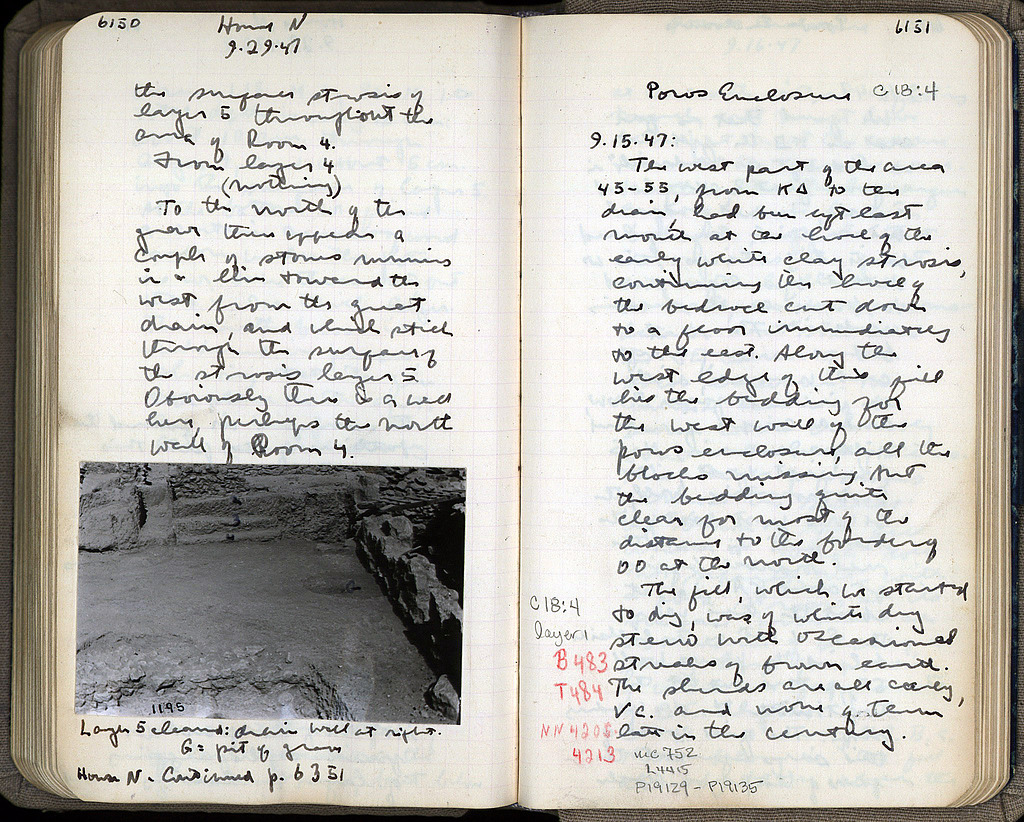 6150
House N
9.29.47
the surface strosis of
layer 5 throughout the
area of Room 4.
From layer 4
(nothing)
To the north of the
grave there appeared a
couple of stones running
in a line toward the
west from the great
drain, and which stick
through the surface of
the strosis layer 5.
Obviously there is a wall
here, perhaps the north
wall of Room 4.
1195
Layer 5 cleaned: drain wall at right.
G = pit of grave
House N. Continued p. 6351
6151
Poros Enclosure C18:4
9.15.47:
The west part of the area
45-55, from ΚΔ to the
drain, had been left last
month at the level of the
early white clay strosis,
continuing the level of
the bedrock cut down
to a floor immediately
to the east. Along the
west edge of this fill
lies the bedding for
the west wall of the
poros enclosure, all the
blocks missing but
the bedding quite
clear for most of the
distance to the
at the north.
The fill, which we started
to dig, was of white dug
stereo with occasional
streaks of brown earth.
The sherds are all early,
V c. and none of them
late in the century.
C18:4
layer 1
B483
T484
NN4205
4213
MC 752
L4415
P19129 - P19135